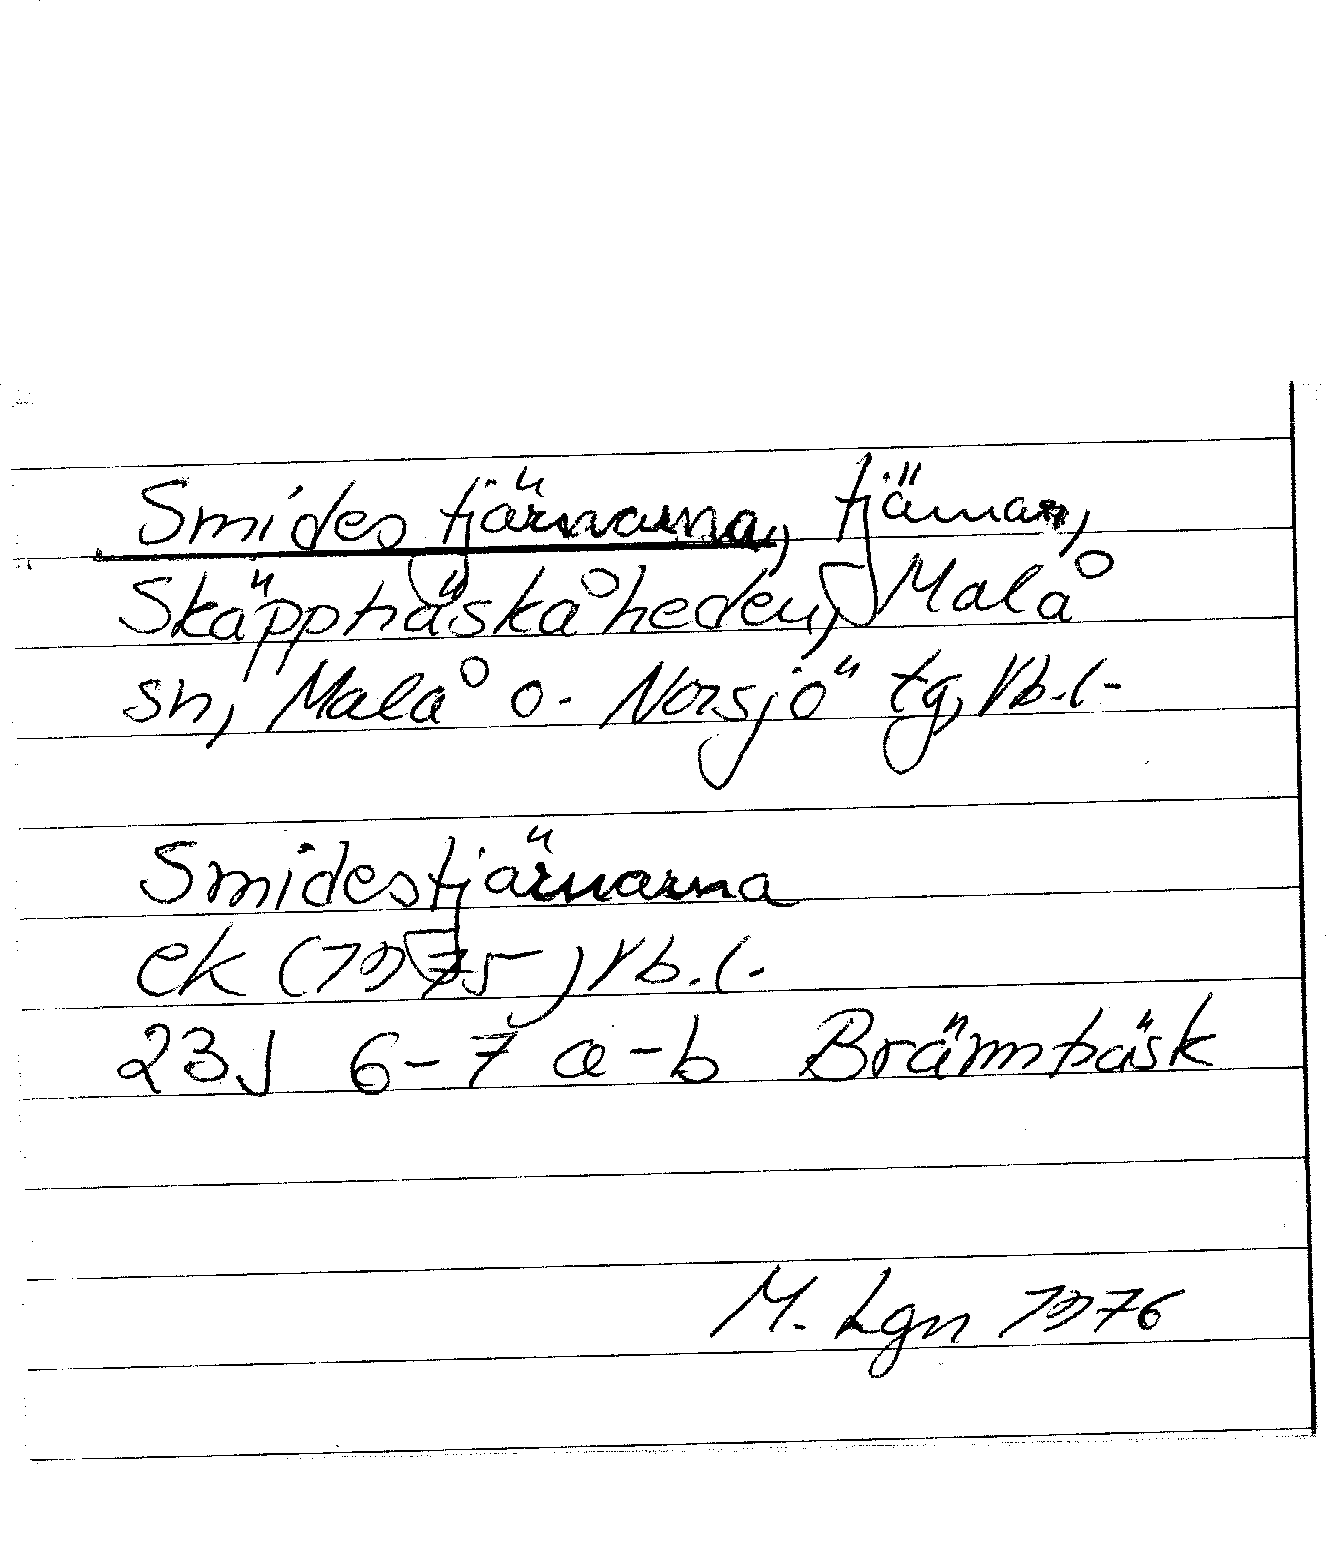 Smidestjärnarna, tjärnar,
Skäppträskåheden, Malå
sn, Malå o. Norsjö tg, Vb.l.
Smidestjärnarna
ek (1975) Vb.l.
23J 6-7 a-b Brännträsk
M. Lgn 1976